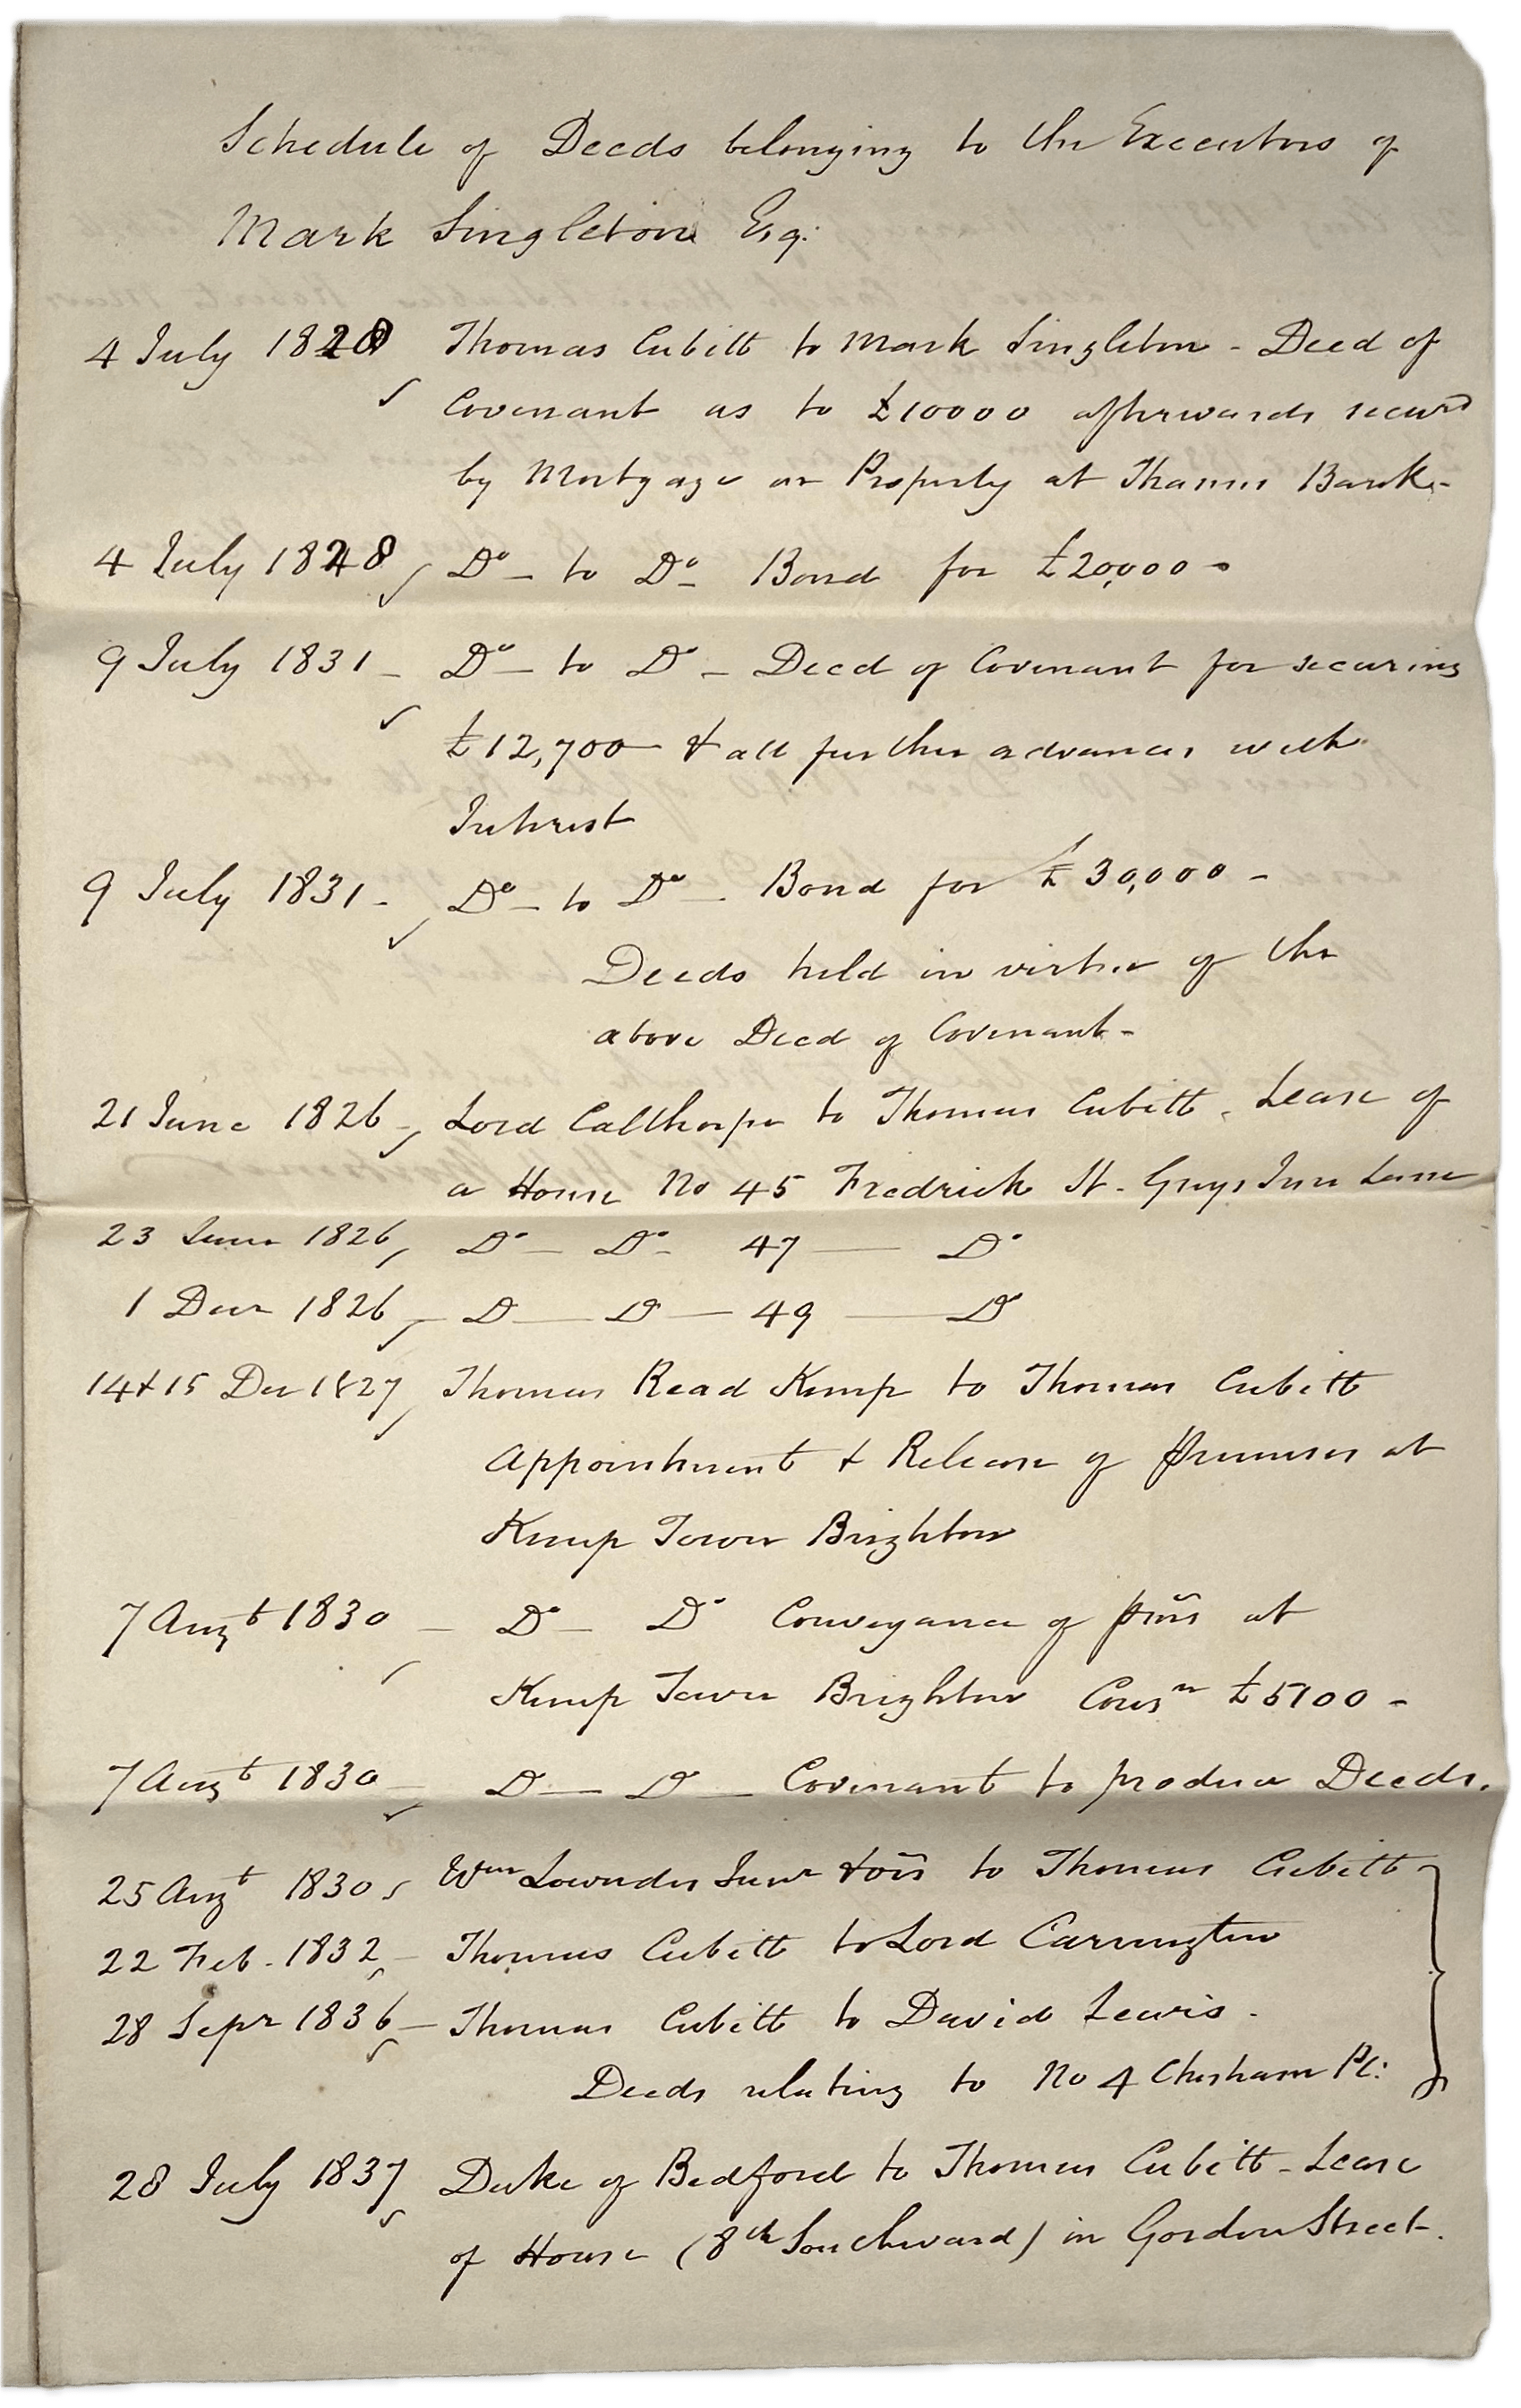 Schedule of Deeds belonging to the Executors of
Mark Singleton Esq:
4 July 1828 Thomas Cubitt to Mark Singleton - Deed of
Covenant as to £10000 afterwards secured
by Mortgage on Property at Thames Bank -
4 July 1828 Do - to Do - Bond for £20,000 -
9 July 1831 - Do - to Do - Deed of Covenant for securing
£12,700 & all further advances with
Interest
9 July 1831 - Do - to Do - Bond for £30,000 -
Deeds held in virtue of the
above Deed of Covenant -
21 June 1826 - Lord Calthorpe to Thomas Cubitt - Lease of
a House No 45 Fredrick St. Grays Inn Lane
23 June 1826 Do - Do - 47 - Do
1 Decr 1826 - Do - Do - 49 - Do
14 & 15 Der 1827 Thomas Read Kemp to Thomas Cubitt
Appointment & Release of Premises at
Kemp Town Brighton
7 Augt 1830 - Do - Do Conveyance of pms at
Kemp Town Brighton Consn £5100 -
7 Augt 1830 - Do - Do - Covenant to produce Deeds.
25 Augt 1830 Wm Lowndes Junr & ors to Thomas Cubitt
22 Feb. 1832 - Thomas Cubitt to Lord Carrington
28 Sepr 1836 - Thomas Cubitt to David Lewis -
Deeds relating to No 4 Chesham Pl:
28 July 1837 Duke of Bedford to Thomas Cubitt - Lease
of House (8th Southward) in Gordon Street -